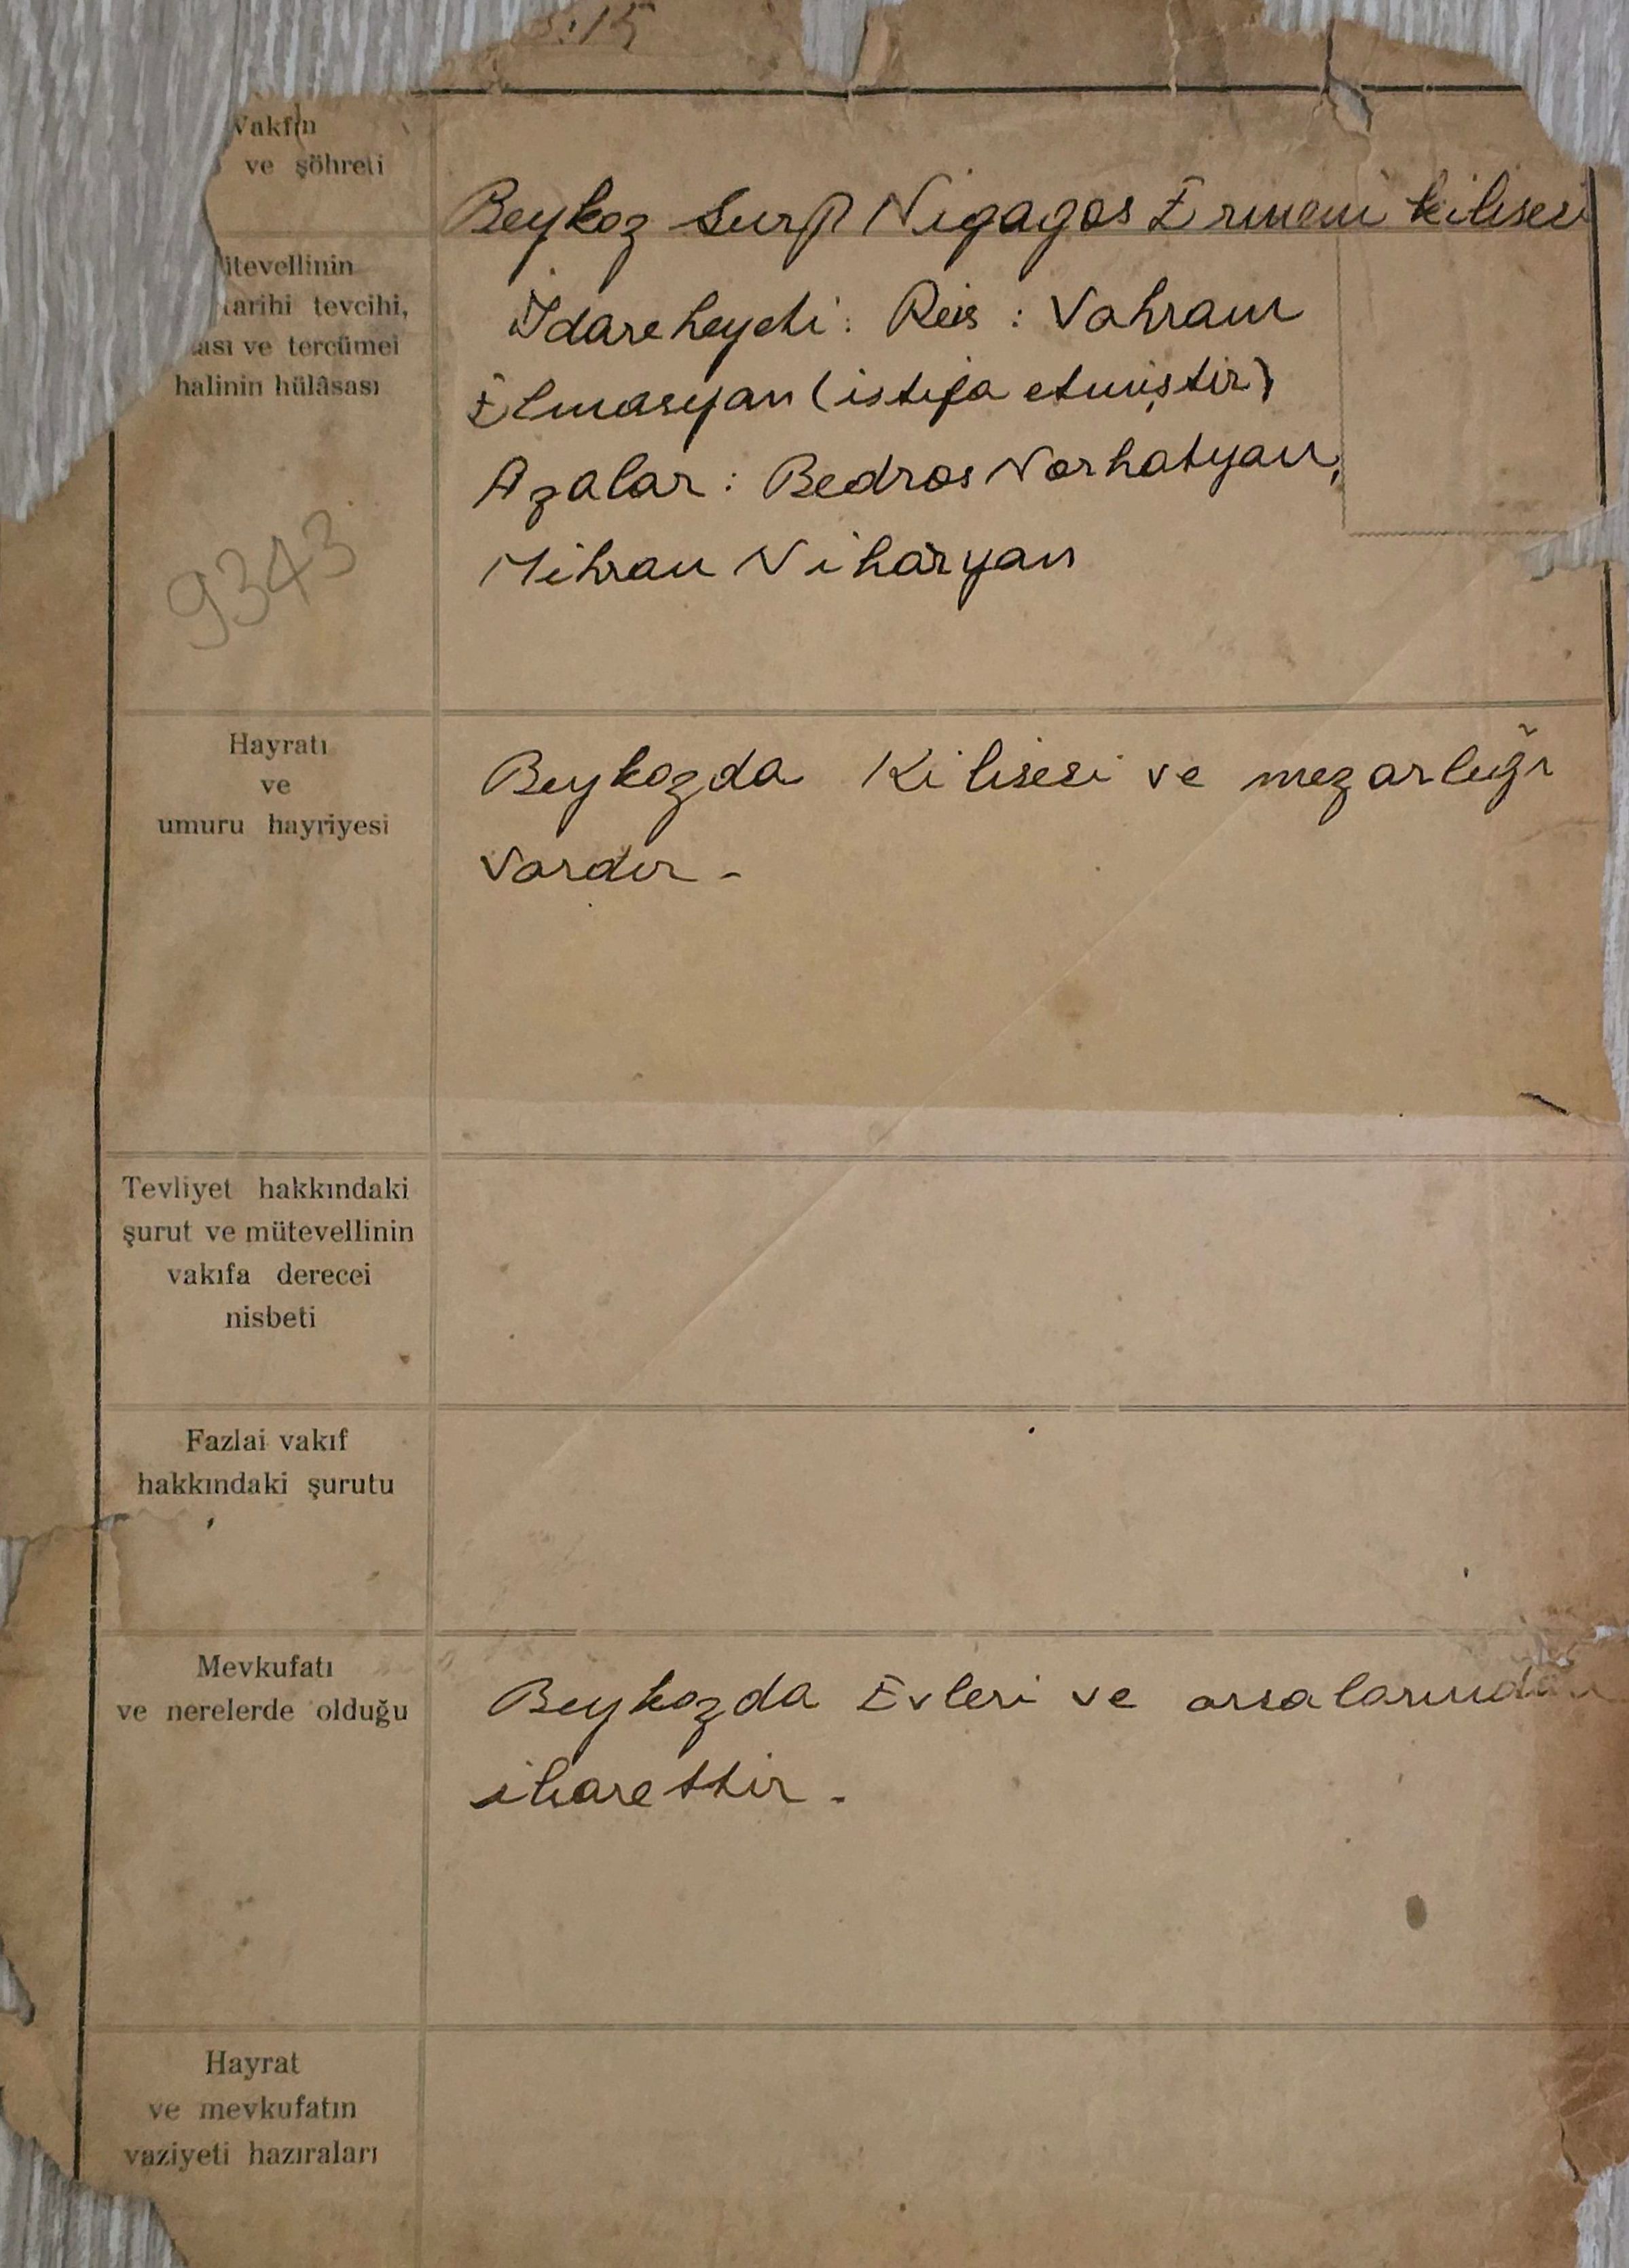 :15
Vakfın
ve şöhreti
Beykoz Surp Nigagos Ermeni kilisesi
itevellinin
tarihi tevcihi,
ası ve tercümei
halinin hülâsası
İdare heyeti : Reis : Vahram
Elmasyan (istifa etmiştir)
Azalar : Bedros Norhatyan,
Mihran Niharyan
9343
Hayratı
ve
umuru hayriyesi
Beykozda Kilisesi ve mezarlığı
vardır -
Tevliyet hakkındaki
şurut ve mütevellinin
vakıfa derecei
nisbeti
Fazlai vakıf
hakkındaki şurutu
Mevkufatı
ve nerelerde olduğu
Beykozda Evleri ve arsalarından
ibarettir -
Hayrat
ve mevkufatın
vaziyeti hazıraları